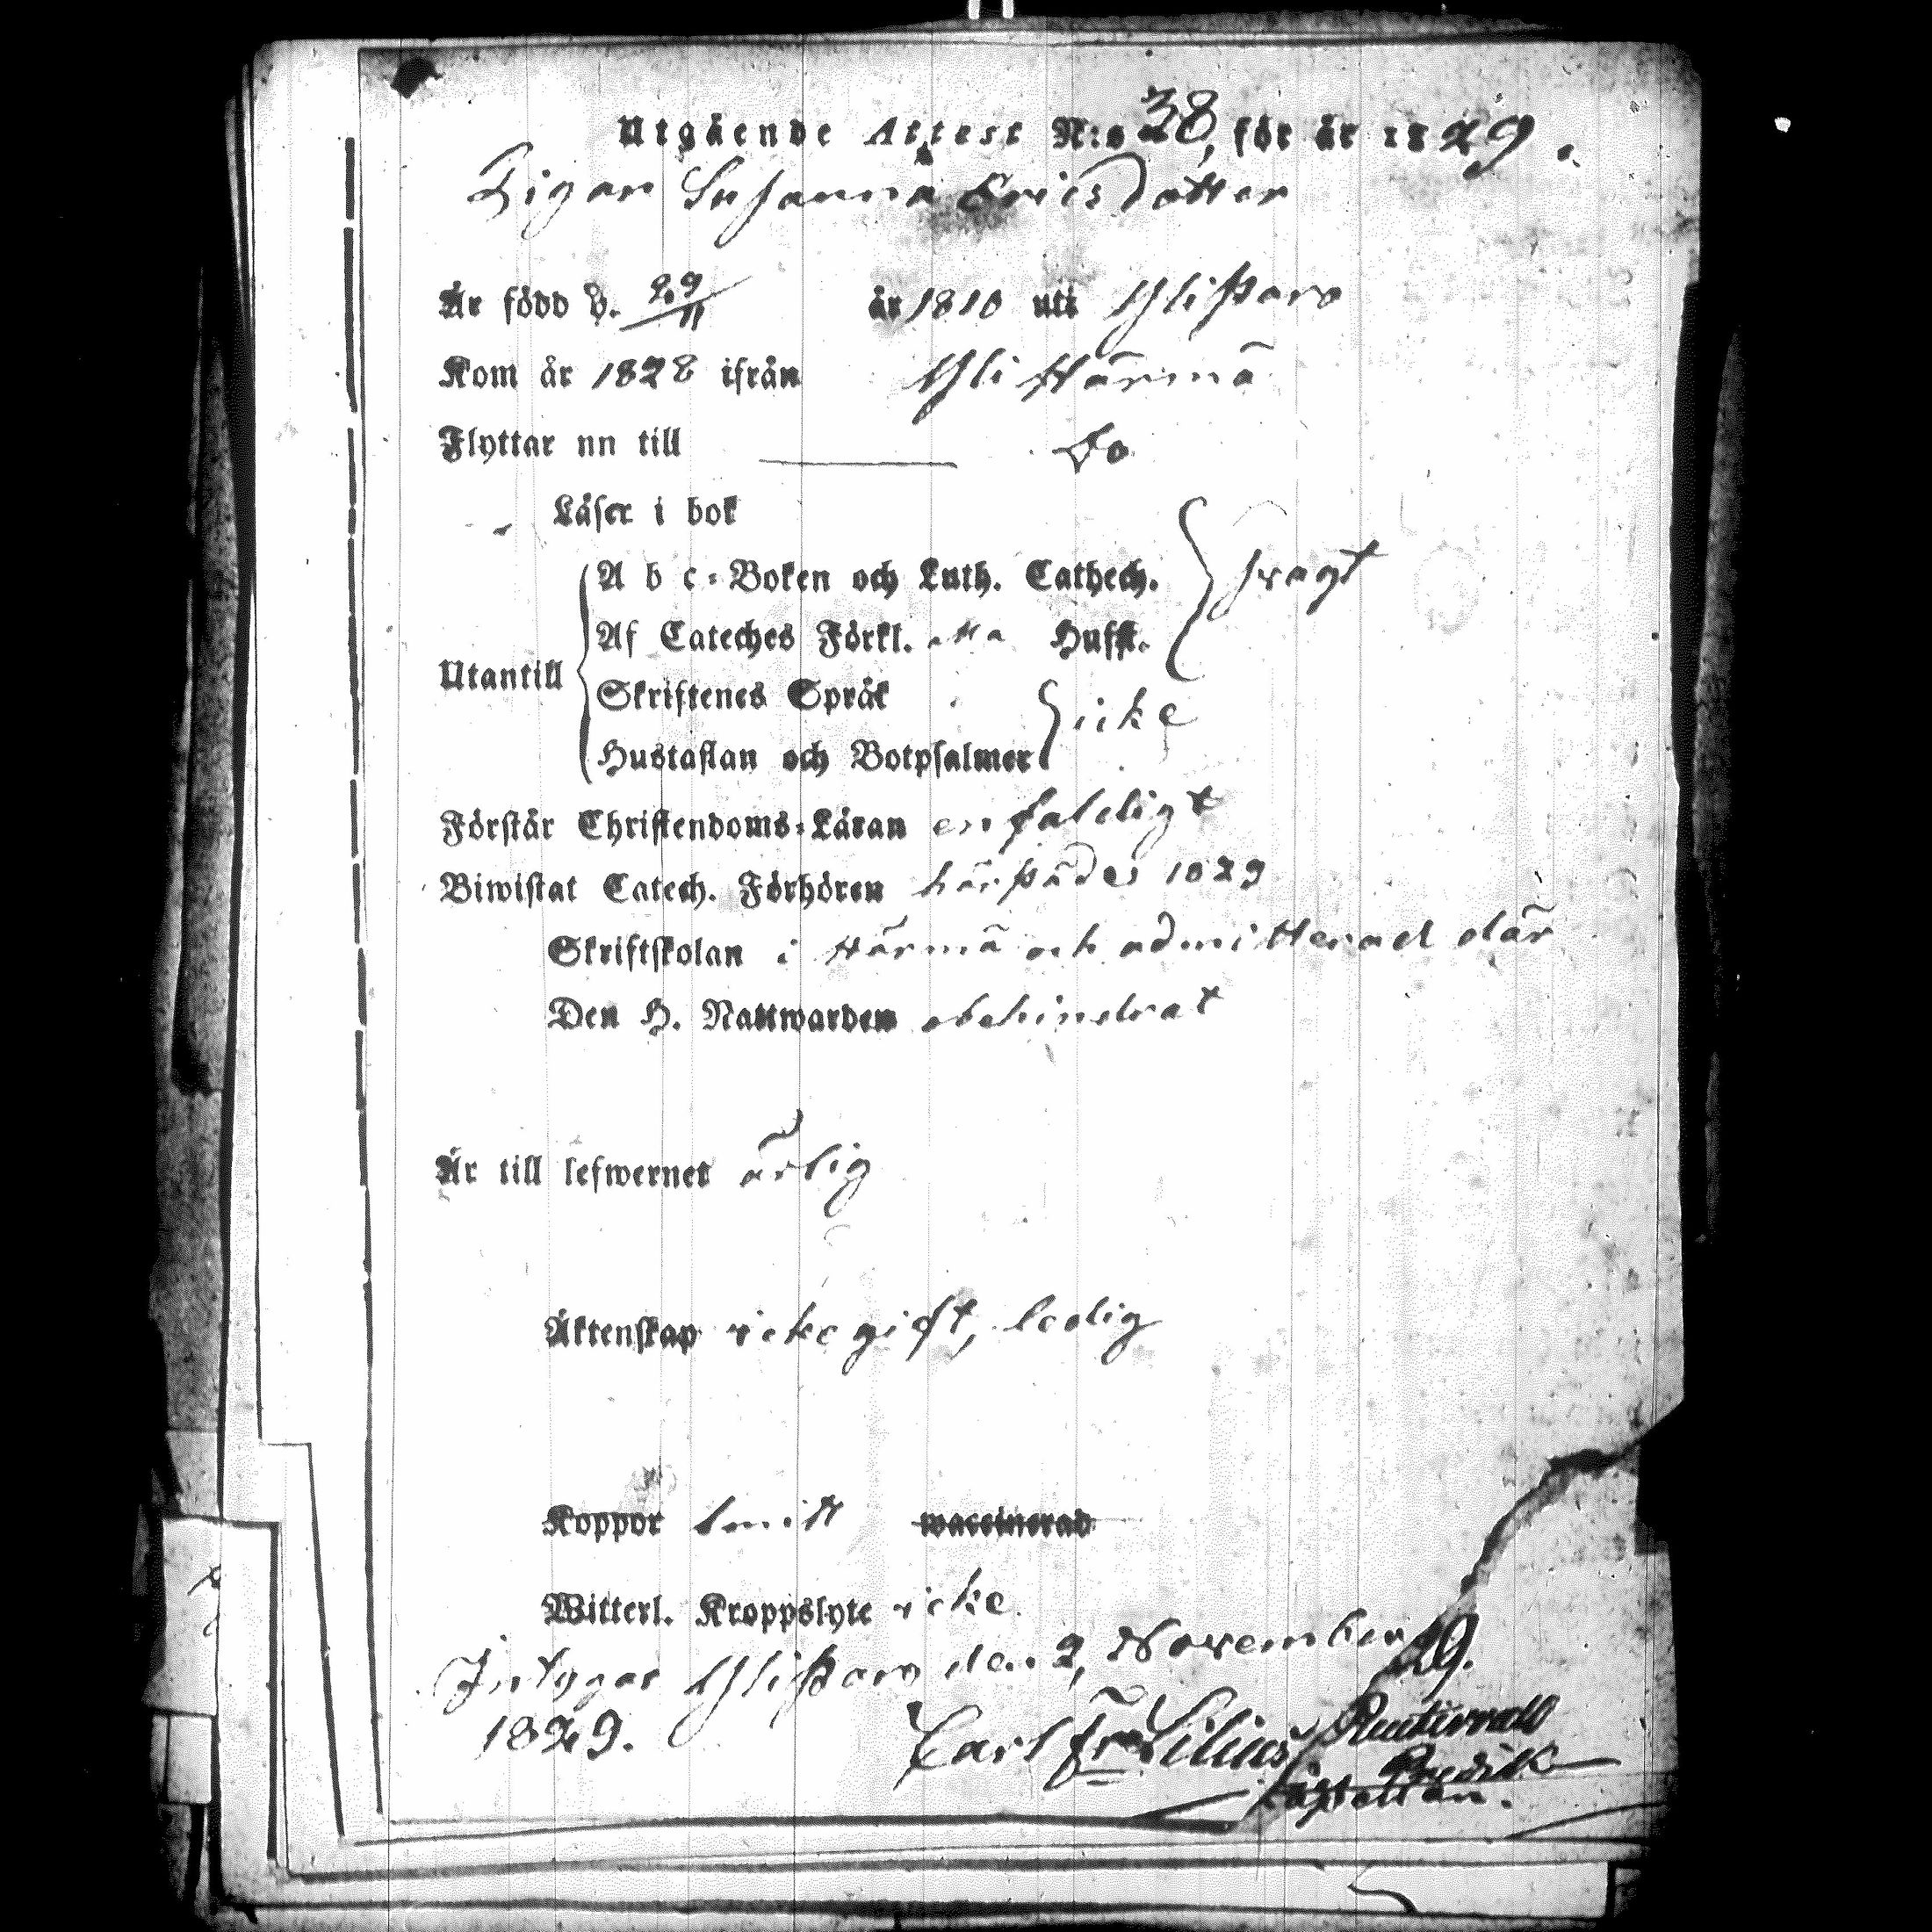 Utgående Attest N:o 38, för år 1829.
Pigan Susanna Ericsdotter
Är född d. 29/11 år 1810 uti Ylistaro
Kom år 1828 ifrån Yli Härmä
Flyttar nu till Do
Läser i bok
A b c-Boken och Luth. Cathech. } svagt
Af Cateches Förkl. Husf.
Utantill
Skriftenes Språk
Hustaflan och Botpsalmer } icke
Förstår Christendoms-Läran enfaldigt
Biwistat Catech. Förhören härstädes 1829
Skriftskolan i Härmä och admitterad där
Den H. Nattwarden obehindrat
Är till lefwernet ärlig
Äktenskap icke gift, ledig
Koppor waccinerad
Witterl. Kroppslyte icke
Intygar Ylistaro den 2, November
1829. Carl Fr Lilius